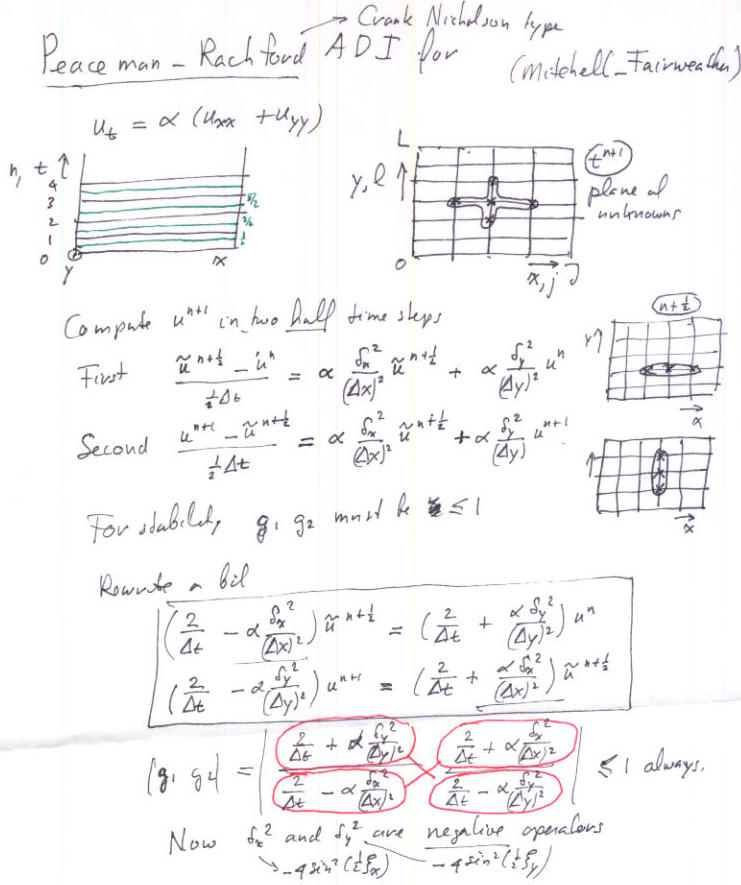 → Crank Nicholson type
Peaceman - Rachford ADI for (Mitchell-Fairweather)
u_t = α (u_xx + u_yy)
n, t ↑
4
3
2
1
0
5/2
3/2
1/2
y
x
L
y, l ↑
0
x, j J
t^{n+1}
plane of
unknowns
Compute u^{n+1} in two half time steps
First (ũ^{n+½} - u^n) / (½Δt) = α δ_x²/(Δx)² ũ^{n+½} + α δ_y²/(Δy)² u^n
Second (u^{n+1} - ũ^{n+½}) / (½Δt) = α δ_x²/(Δx)² ũ^{n+½} + α δ_y²/(Δy) u^{n+1}
n+½
Y↑
x
↑
x
For stability g₁ g₂ must be ≤ 1
Rewrite a bit
(2/Δt - α δ_x²/(Δx)²) ũ^{n+½} = (2/Δt + α δ_y²/(Δy)²) u^n
(2/Δt - α δ_y²/(Δy)²) u^{n+1} = (2/Δt + α δ_x²/(Δx)²) ũ^{n+½}
|g₁ g₂| = | (2/Δt + α δ_y²/(Δy)²) / (2/Δt - α δ_x²/(Δx)²) (2/Δt + α δ_x²/(Δx)²) / (2/Δt - α δ_y²/(Δy)²) | ≤ 1 always.
Now δ_x² and δ_y² are negative operators
→ -4 sin²(½ξ_x) -4 sin²(½ξ_y)